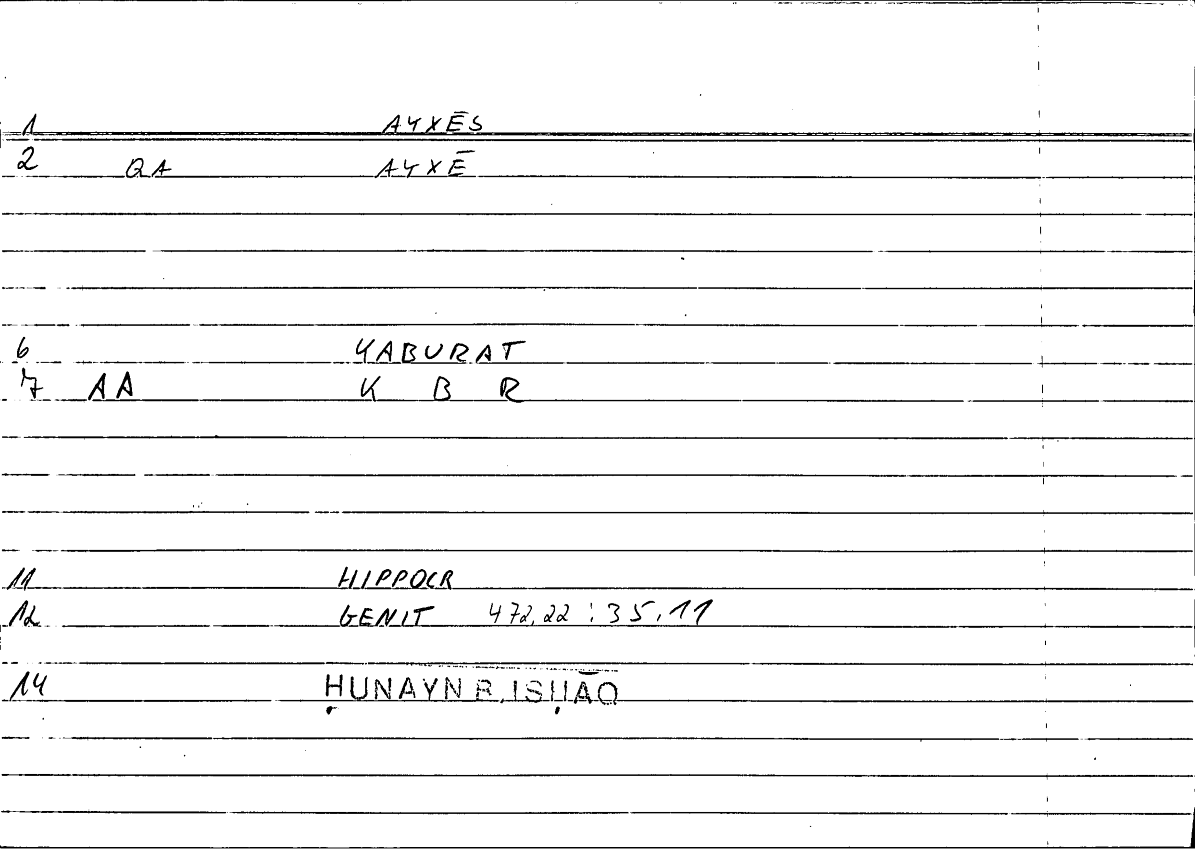 1 AYXĒS
2 QA AYXĒ
6 YABURAT
7 AA K B R
11 HIPPOCR
12 GENIT 472,22 : 35,11
14 ḤUNAYN B. ISḤĀQ